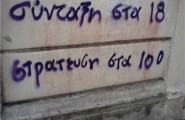 σύνταξη στα 18
στράτευση στα 100